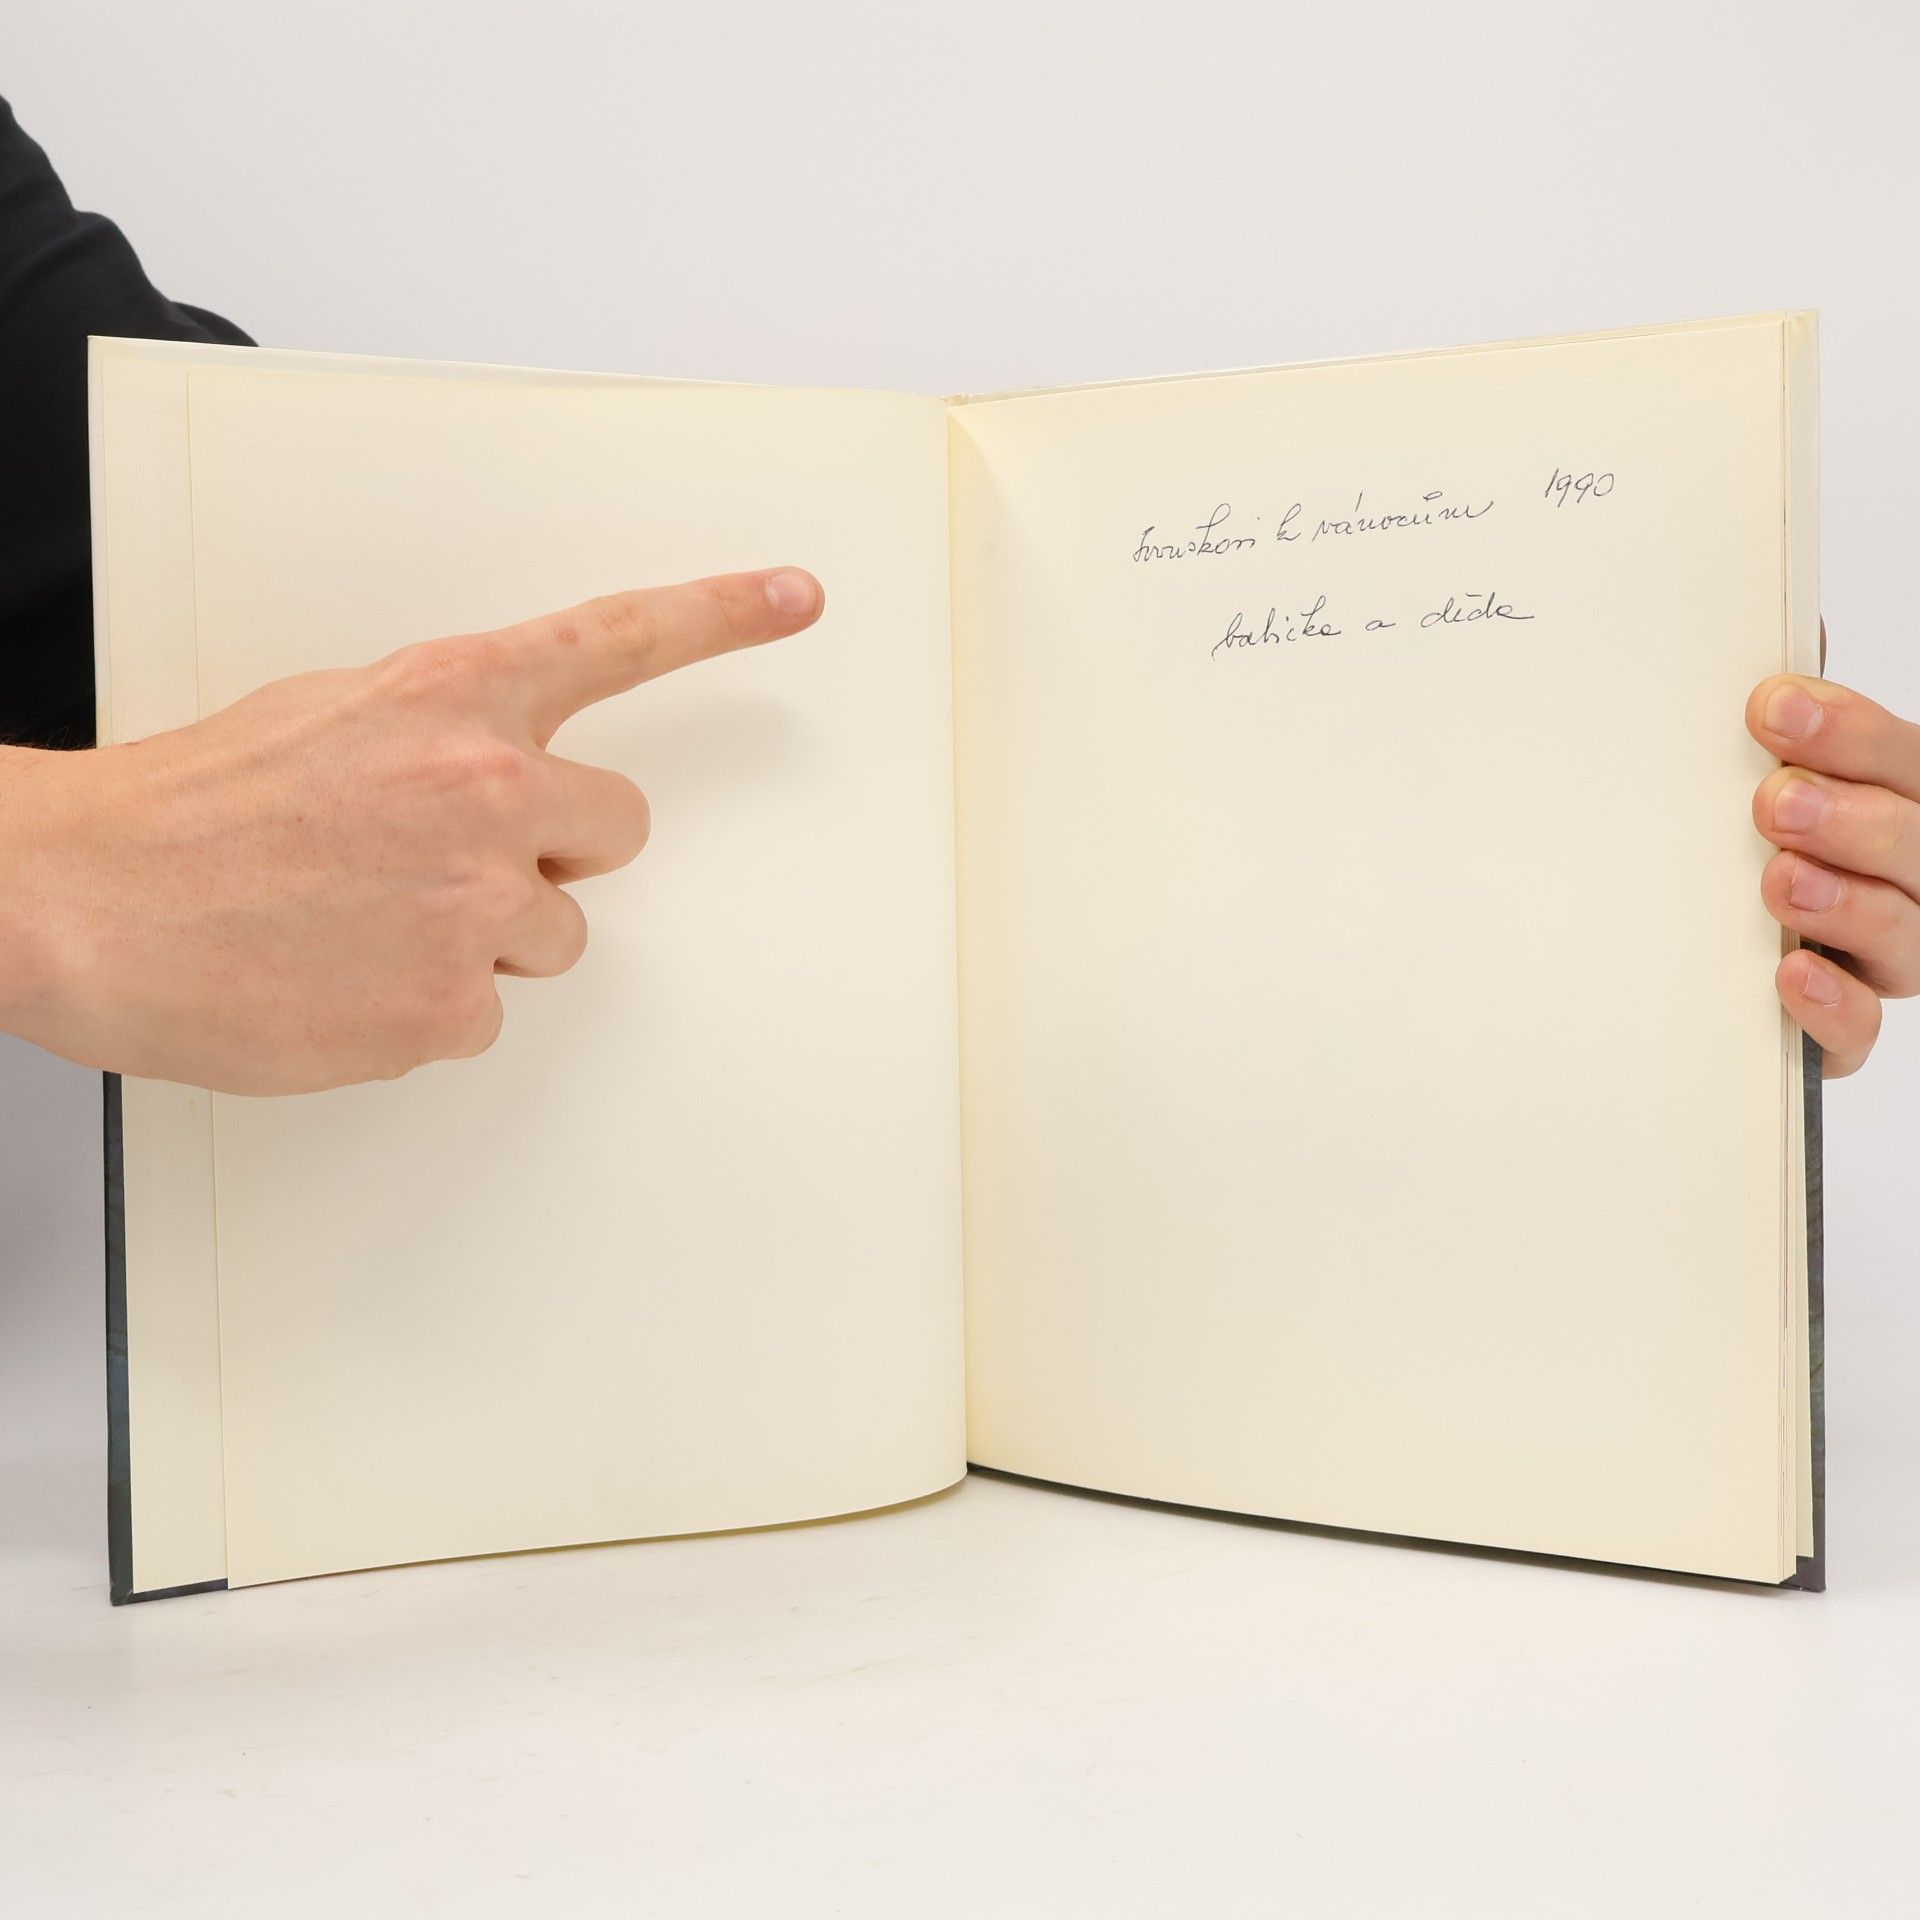 Ivouskovi k vánocům 1990
babička a děda